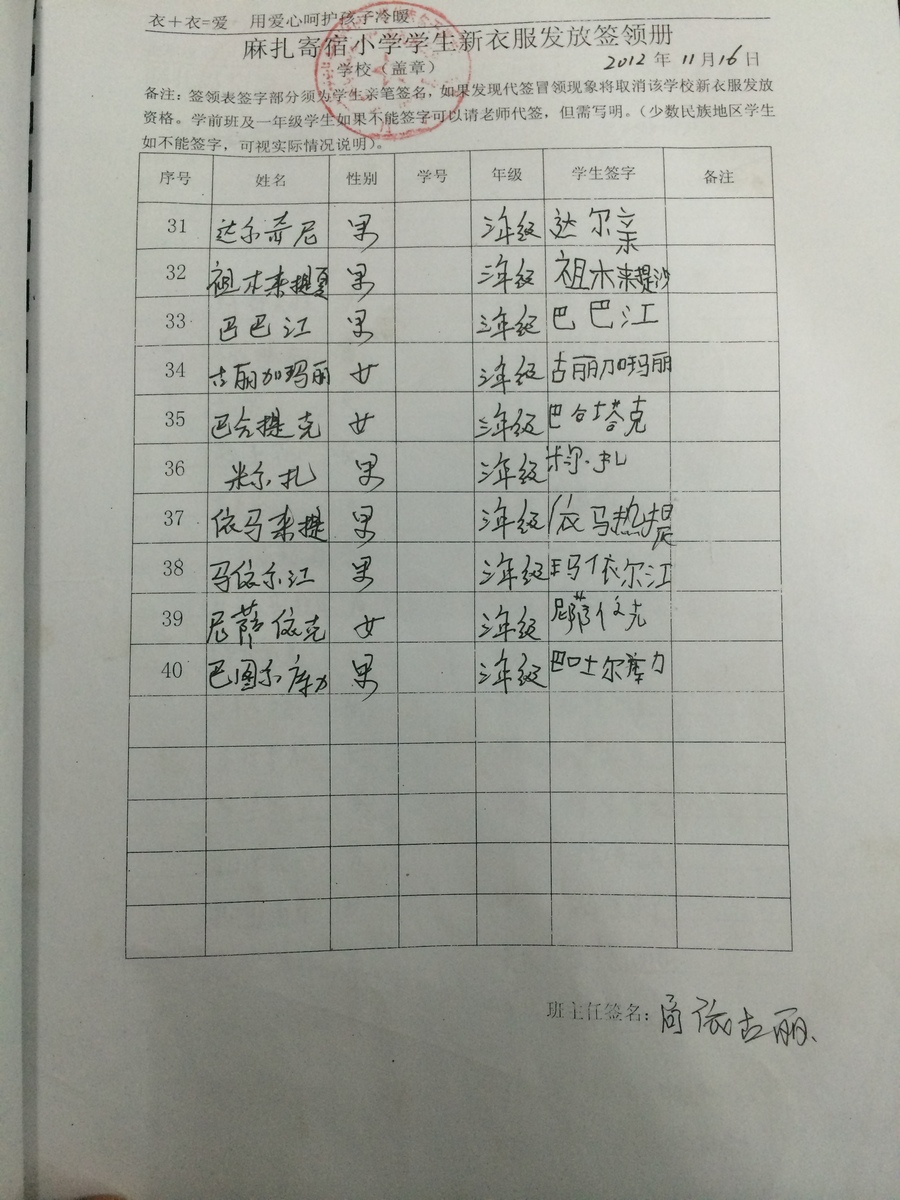 衣+衣=爱 用爱心呵护孩子冷暖
麻扎寄宿小学学生新衣服发放签领册
学校（盖章） 2012 年 11 月 16 日
备注：签领表签字部分须为学生亲笔签名，如果发现代签冒领现象将取消该学校新衣服发放
资格。学前班及一年级学生如果不能签字可以请老师代签，但需写明。（少数民族地区学生
如不能签字，可视实际情况说明）。
序号 姓名 性别 学号 年级 学生签字 备注
31 达尔希尼 男 三年级 达尔
32 祖木来提夏 男 三年级 祖木来提沙
33 巴巴江 男 三年级 巴巴江
34 古丽加玛丽 女 三年级 古丽加玛丽
35 巴合提克 女 三年级 巴合塔克
36 米尔扎 男 三年级 米尔扎
37 依马来提 男 三年级 依马热提
38 马依尔江 男 三年级 玛依尔江
39 尼莎依克 女 三年级 依克
40 巴图尔库力 男 三年级 巴吐尔库力
班主任签名： 依古丽